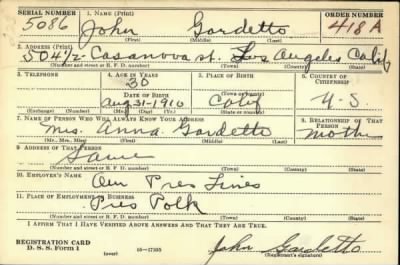 SERIAL NUMBER 1. NAME (Print) ORDER NUMBER
5086 John Gardetto 418A
(First) (Middle) (Last)
2. ADDRESS (Print)
504 1/2 Casanova st. Los Angeles Calif
(Number and street or R. F. D. number) (Town) (County) (State)
3. TELEPHONE 4. AGE IN YEARS 5. PLACE OF BIRTH 6. COUNTRY OF CITIZENSHIP
30
DATE OF BIRTH Calif
Aug 31-1910 (Town or county) U-S.
(Exchange) (Number) (Mo.) (Day) (Yr.) (State or country)
7. NAME OF PERSON WHO WILL ALWAYS KNOW YOUR ADDRESS 8. RELATIONSHIP OF THAT PERSON
Mrs. Anna Gardetto Mother
(Mr., Mrs., Miss) (First) (Middle) (Last)
9. ADDRESS OF THAT PERSON
Same
(Number and street or R. F. D. number) (Town) (County) (State)
10. EMPLOYER'S NAME
Am Pres Lines
11. PLACE OF EMPLOYMENT OR BUSINESS
Pres Polk
(Number and street or R. F. D. number) (Town) (County) (State)
I AFFIRM THAT I HAVE VERIFIED ABOVE ANSWERS AND THAT THEY ARE TRUE.
REGISTRATION CARD
D. S. S. Form 1 (over) 16-17105 John Gardetto
(Registrant's signature)